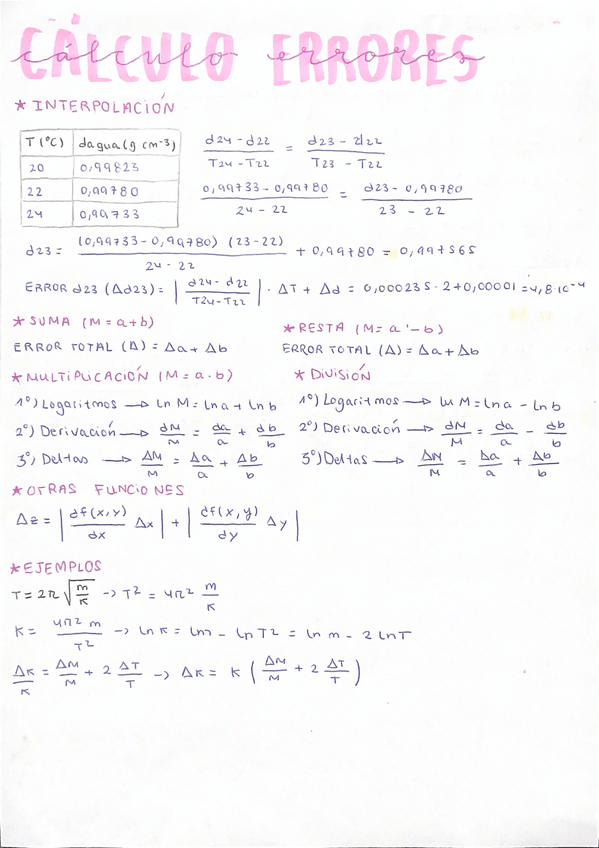 CÁLCULO ERRORES
cálculo errores
* INTERPOLACIÓN
T (ºC) dagua (g cm⁻³)
20 0,99823
22 0,99780
24 0,99733
(d24 - d22)/(T24 - T22) = (d23 - d22)/(T23 - T22)
(0,99733 - 0,99780)/(24 - 22) = (d23 - 0,99780)/(23 - 22)
d23 = ((0,99733 - 0,99780) (23-22))/(24 - 22) + 0,99780 = 0,997565
ERROR d23 (Δd23) = |(d24 - d22)/(T24 - T22)| · ΔT + Δd = 0,000235 · 2 + 0,00001 = 4,8·10⁻⁴
* SUMA (M = a+b)
ERROR TOTAL (Δ) = Δa + Δb
* RESTA (M = a - b)
ERROR TOTAL (Δ) = Δa + Δb
* MULTIPLICACIÓN (M = a · b)
1º) Logaritmos → ln M = ln a + ln b
2º) Derivación → dM/M = da/a + db/b
3º) Deltas → ΔM/M = Δa/a + Δb/b
* DIVISIÓN
1º) Logaritmos → ln M = ln a - ln b
2º) Derivación → dM/M = da/a - db/b
3º) Deltas → ΔM/M = Δa/a + Δb/b
* OTRAS FUNCIONES
Δz = |df(x,y)/dx Δx| + |df(x,y)/dy Δy|
* EJEMPLOS
T = 2π √(m/K) → T² = 4π² m/K
K = 4π² m/T² → ln K = ln m - ln T² = ln m - 2 ln T
ΔK/K = ΔM/M + 2 ΔT/T → ΔK = K (ΔM/M + 2 ΔT/T)